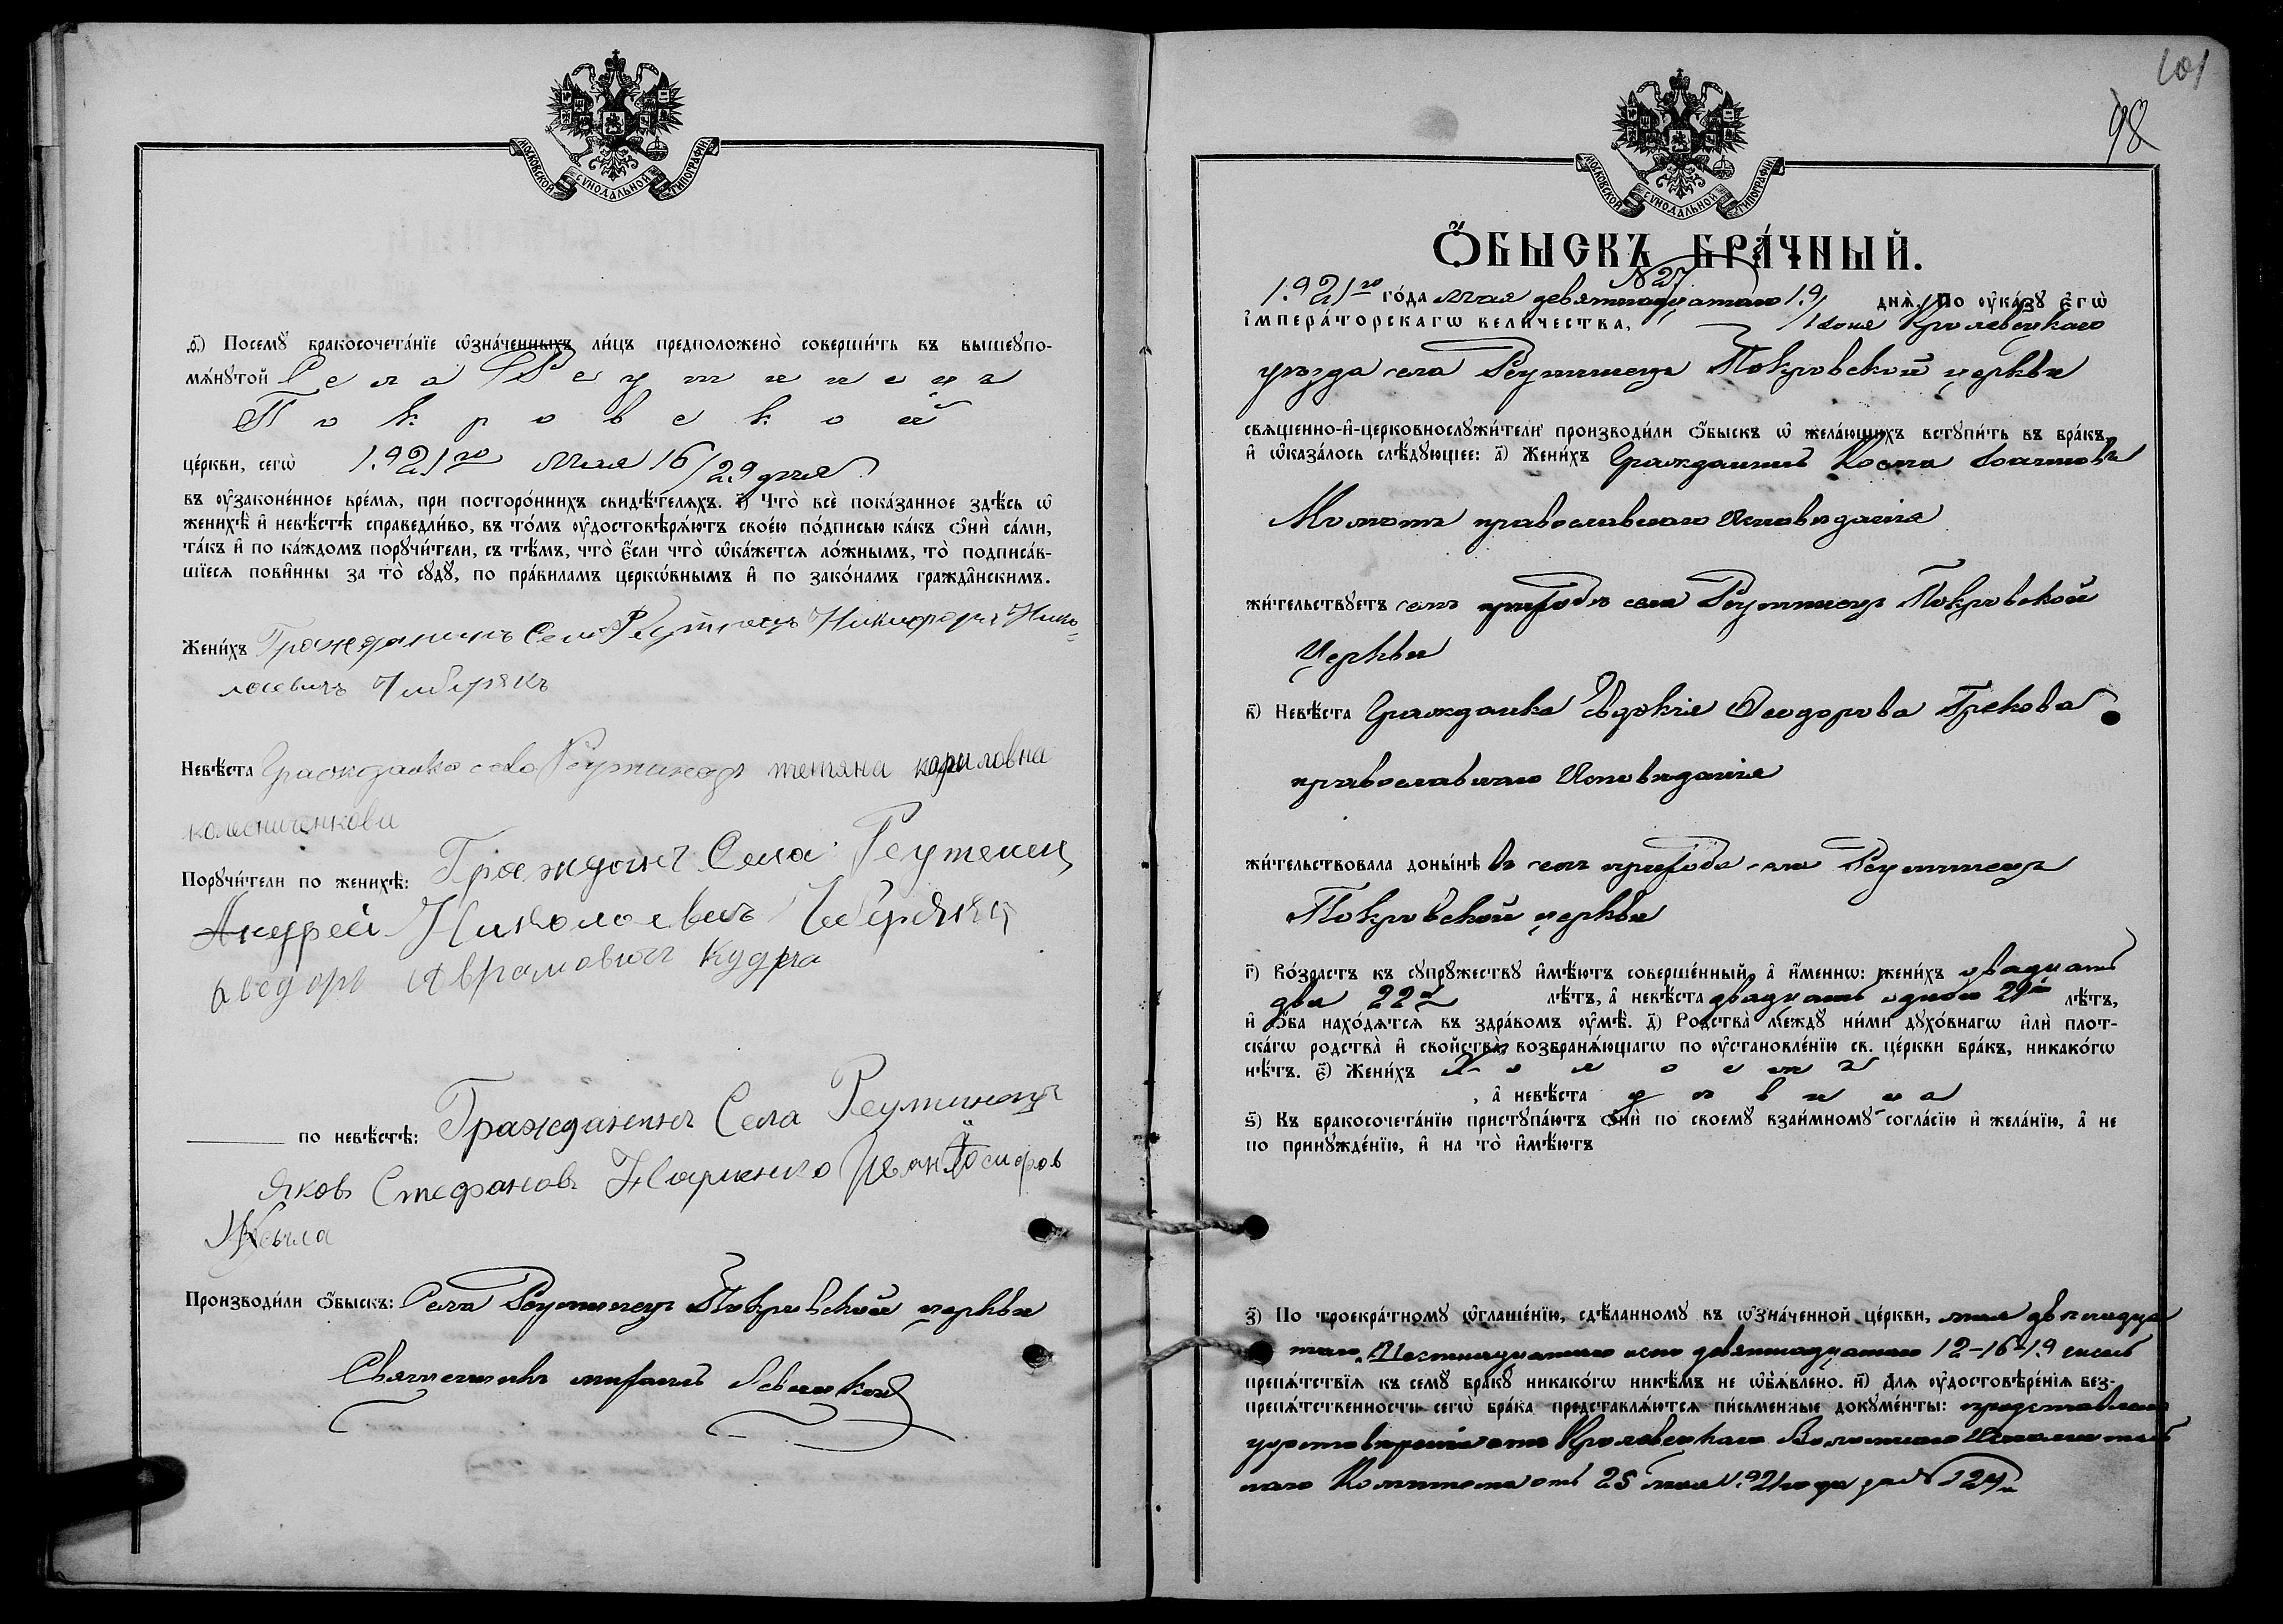 МОСКОВСКОЙ СѴНОДАЛЬНОЙ ТИПОГРАФІИ
д҃) Посемꙋ̀ бракосочета́нїе ѡ҆зна́ченныхъ ли́цъ предположено̀ соверши́ть въ вышеꙋпо-
мѧ́нꙋтой Села Реутинецъ
Покровской
це́ркви, сегѡ̀ 1921го Мая 16/29 дня
въ ᲂу҆законе́нное вре́мѧ, при посторо́ннихъ свидѣ́телѧхъ. Что̀ всѐ пока́занное здѣ́сь ѡ҆
женихѣ̀ и҆ невѣ́стѣ справедли́во, въ то́мъ ᲂу҆достовѣрѧ́ютъ свое́ю по́дписью ка́къ ѻ҆нѝ са́ми,
та́къ и҆ по ка́ждомъ порꙋчи́тели, съ тѣ́мъ, что̀ є҆́сли что̀ ѡ҆ка́жетсѧ ло́жнымъ, то̀ подписа́в-
шїесѧ пови́нны за то̀ сꙋдꙋ̀, по пра́виламъ церкѡ́внымъ и҆ по зако́намъ гражда́нскимъ.
Жени́хъ Гражданинъ Села Реутинецъ Никифоръ Нико-
лаевичъ Чибирякъ
Невѣ́ста Гражданка села Реутинецъ тетяна кириловна
колесниченкова
Порꙋчи́тели по женихѣ̀: Граждонъ Села Реутенец
Андрей Николоевичъ
Аврамович Кудра
по невѣ́стѣ: Гражданинъ Села Реутинецъ
Яковъ Стефановъ Иосифов
Производи́ли ѻ҆́быскъ: Села Реутинецъ Покровской церкви
Священникъ
МОСКОВСКОЙ СѴНОДАЛЬНОЙ ТИПОГРАФІИ
101
98
Ѻ҆́БЫСКЪ БРА́ЧНЫЙ.
№ 27
1921го го́да мая девятнадцатаго 19/ днѧ̀, По ᲂу҆ка́зꙋ Є҆гѡ̀
І҆мпера́торскагѡ вели́чества, 1 Іюня Кролевецкаго
уѣзда села Реутинецъ Покровской церкви
свѧще́нно-и҆-церковнослꙋжи́тели производи́ли ѻ҆́быскъ ѡ҆ жела́ющихъ встꙋпи́ть въ бра́къ,
и҆ ѡ҆каза́лось слѣ́дꙋющее: а҃) Жени́хъ Гражданинъ Косма Іоанновъ
православнаго исповѣданія
жи́тельствꙋетъ семъ приходѣ села Реутинецъ Покровской
Церкви
в҃) Невѣ́ста Гражданка Евдокія Ѳеодорова Грекова
православнаго Исповѣданія
жи́тельствовала доны́нѣ въ семъ прихода села Реутинецъ
Покровской церкви
г҃) Во́зрастъ къ сꙋпрꙋ́жествꙋ и҆мѣ́ютъ соверше́нный, а҆ и҆́меннѡ: жени́хъ двадцать
два 22 лѣ́тъ, а҆ невѣ́ста двадцать одинъ 21 лѣ́тъ,
и҆ ѻ҆́ба нахо́дѧтсѧ въ здра́вомъ ᲂу҆мѣ̀. д҃) Родства̀ междꙋ̀ ни́ми дꙋхо́внагѡ и҆лѝ плот-
ска́гѡ родства̀ и҆ свойства̀, возбранѧ́ющагѡ по ᲂу҆становле́нїю св. це́ркви бра́къ, никако́гѡ
нѣ́тъ. є҃) Жени́хъ Холостъ
, а҆ невѣ́ста дѣвица
ѕ҃) Къ бракосочета́нїю пристꙋпа́ютъ ѻ҆нѝ по своемꙋ̀ взаи́мномꙋ согла́сїю и҆ жела́нїю, а҆ не
по принꙋжде́нїю, и҆ на то̀ и҆мѣ́ютъ
з҃) По троекра́тномꙋ ѡ҆глаше́нїю, сдѣ́ланномꙋ въ ѡ҆зна́ченной це́ркви, мая двѣнадца
таго, Шестнадцатаго девятнадцатаго 12-16-19 чиселъ
препѧ́тствїѧ къ семꙋ̀ бра́кꙋ никако́гѡ никѣ́мъ не ѡ҆б̾ѧ́влено. и҃) Длѧ ᲂу҆достовѣре́нїѧ без-
препѧ́тственности сегѡ̀ бра́ка представлѧ́ютсѧ пи́сьменные докꙋме́нты: представлено
удостовѣреніе отъ Кролевецкаго Волостного Исполнитель
наго Комитета отъ 25 мая 1921 года за № 124